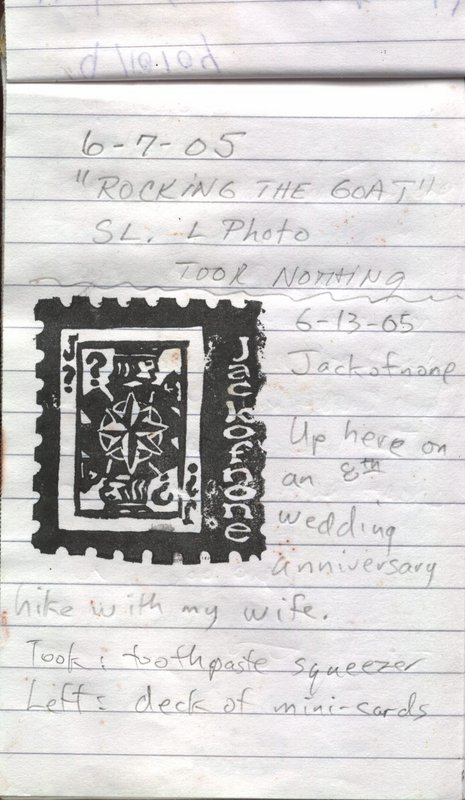 6-7-05
"ROCKING THE GOAT"
SL. L Photo
TOOK NOTHING
6-13-05
Jackofnone
Up here on
an 8th
wedding
anniversary
hike with my wife.
Took: toothpaste squeezer
Left: deck of mini-cards
J
?
?
Jackofnone
?
J